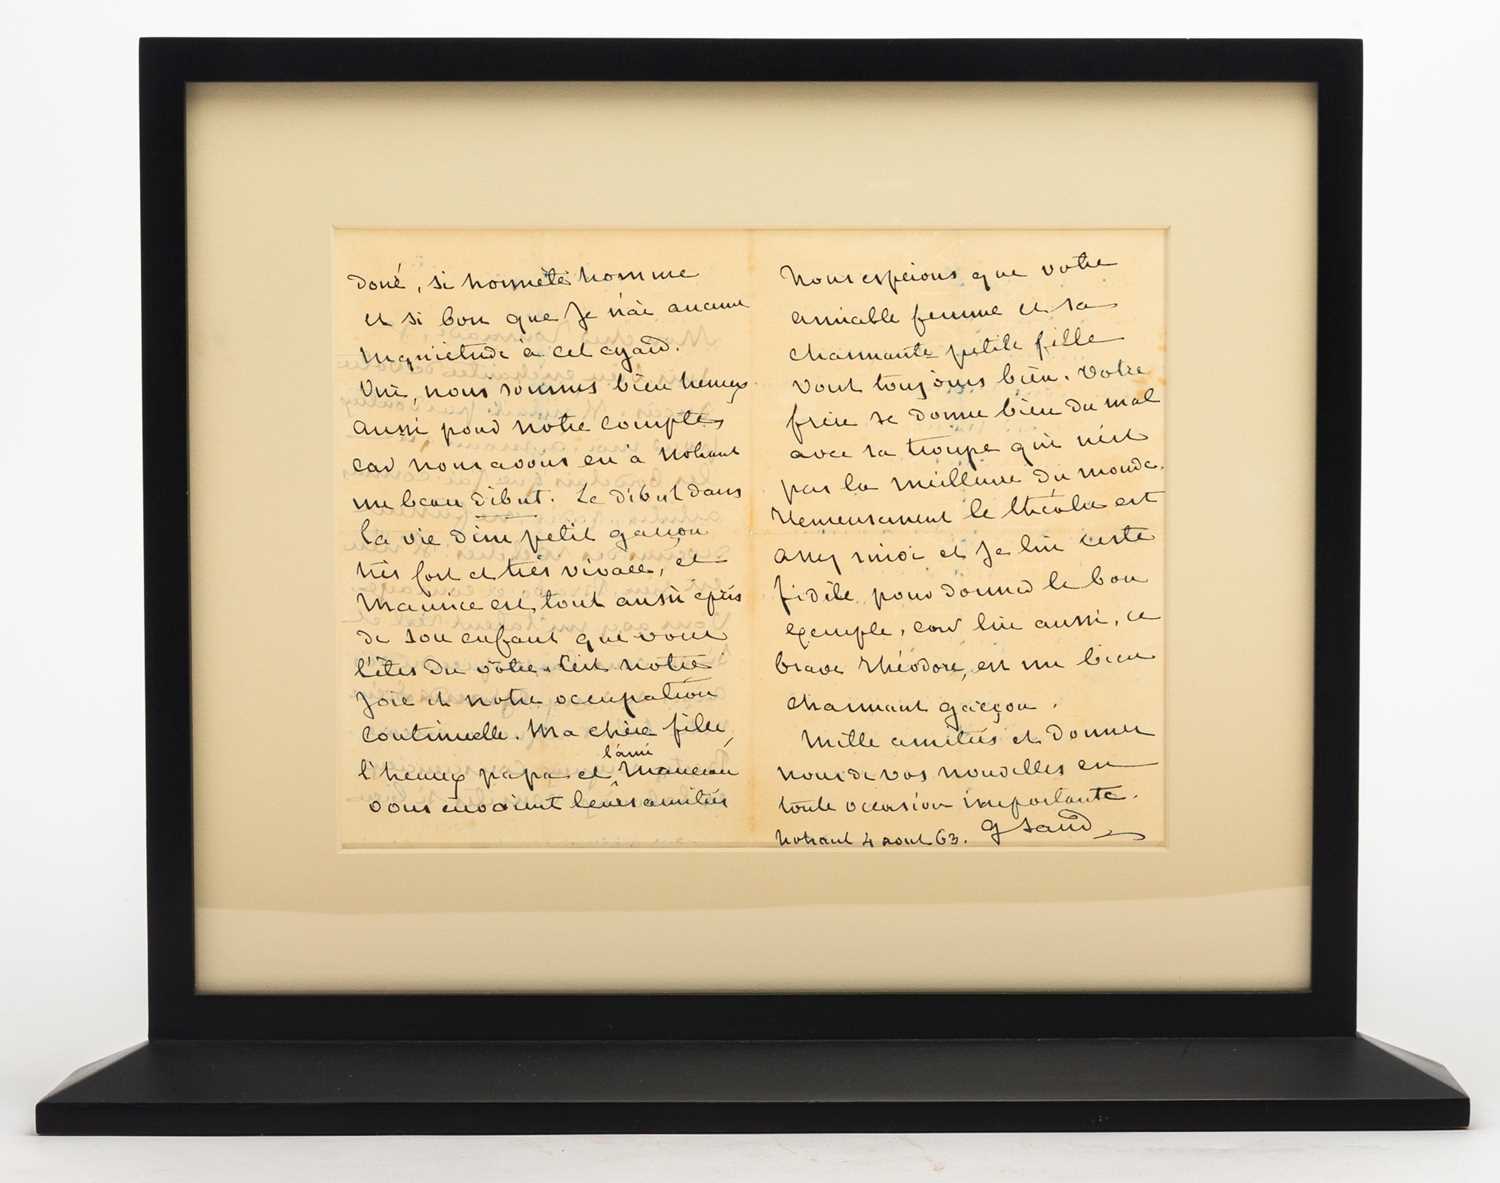 doué, si honnête homme
et si bon que je n'ai aucune
inquiétude à cet égard.
Oui, nous sommes bien heureux
aussi pour notre compte,
car nous avons eu à Nohant
un beau début. Le début dans
la vie d'un petit garçon
très fort et très vivace, et
Maurice est tout aussi épris
de son enfant que vous
l'êtes du vôtre. C'est notre
joie et notre occupation
continuelle. Ma chère fille,
l'heureux papa et l'ami Manceau
vous envoient leurs amitiés
Nous espérons que votre
aimable femme et sa
charmante petite fille
vont toujours bien. Votre
frère se donne bien du mal
avec sa troupe qui n'est
pas la meilleure du monde.
Heureusement le théâtre est
assez suivi et je lui reste
fidèle pour donner le bon
exemple, car lui aussi, ce
brave Théodore, est un bien
charmant garçon.
Mille amitiés et donnez
nous de vos nouvelles en
toute occasion importante.
Nohant 4 aout 63. G Sand